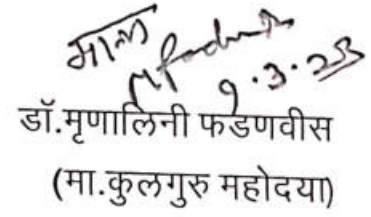 मान्य
९.३.२३
डॉ.मृणालिनी फडणवीस
(मा.कुलगुरु महोदया)